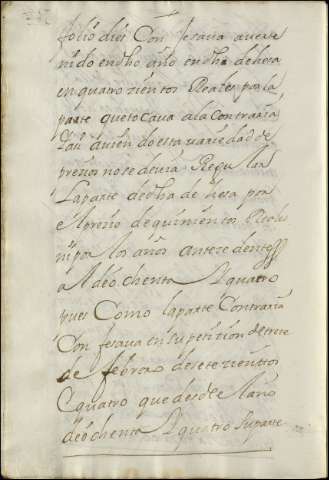 folio dies Confesava aver te
nido en dho año en dha dehesa
en quatro zientos Reales por la
parte que tocava a la Contraria
Y aviendo esta variedad de
prezios no se devia Regular
La parte de dha dehesa por
el prezio de quinientos Reales
ni por los años antezedentes
al de ochenta y quatro
pues Como la parte Contraria
Confesava en su petizion de treze
de febrero de setezientos
y quatro que desde el año
de ochenta y quatro su parte